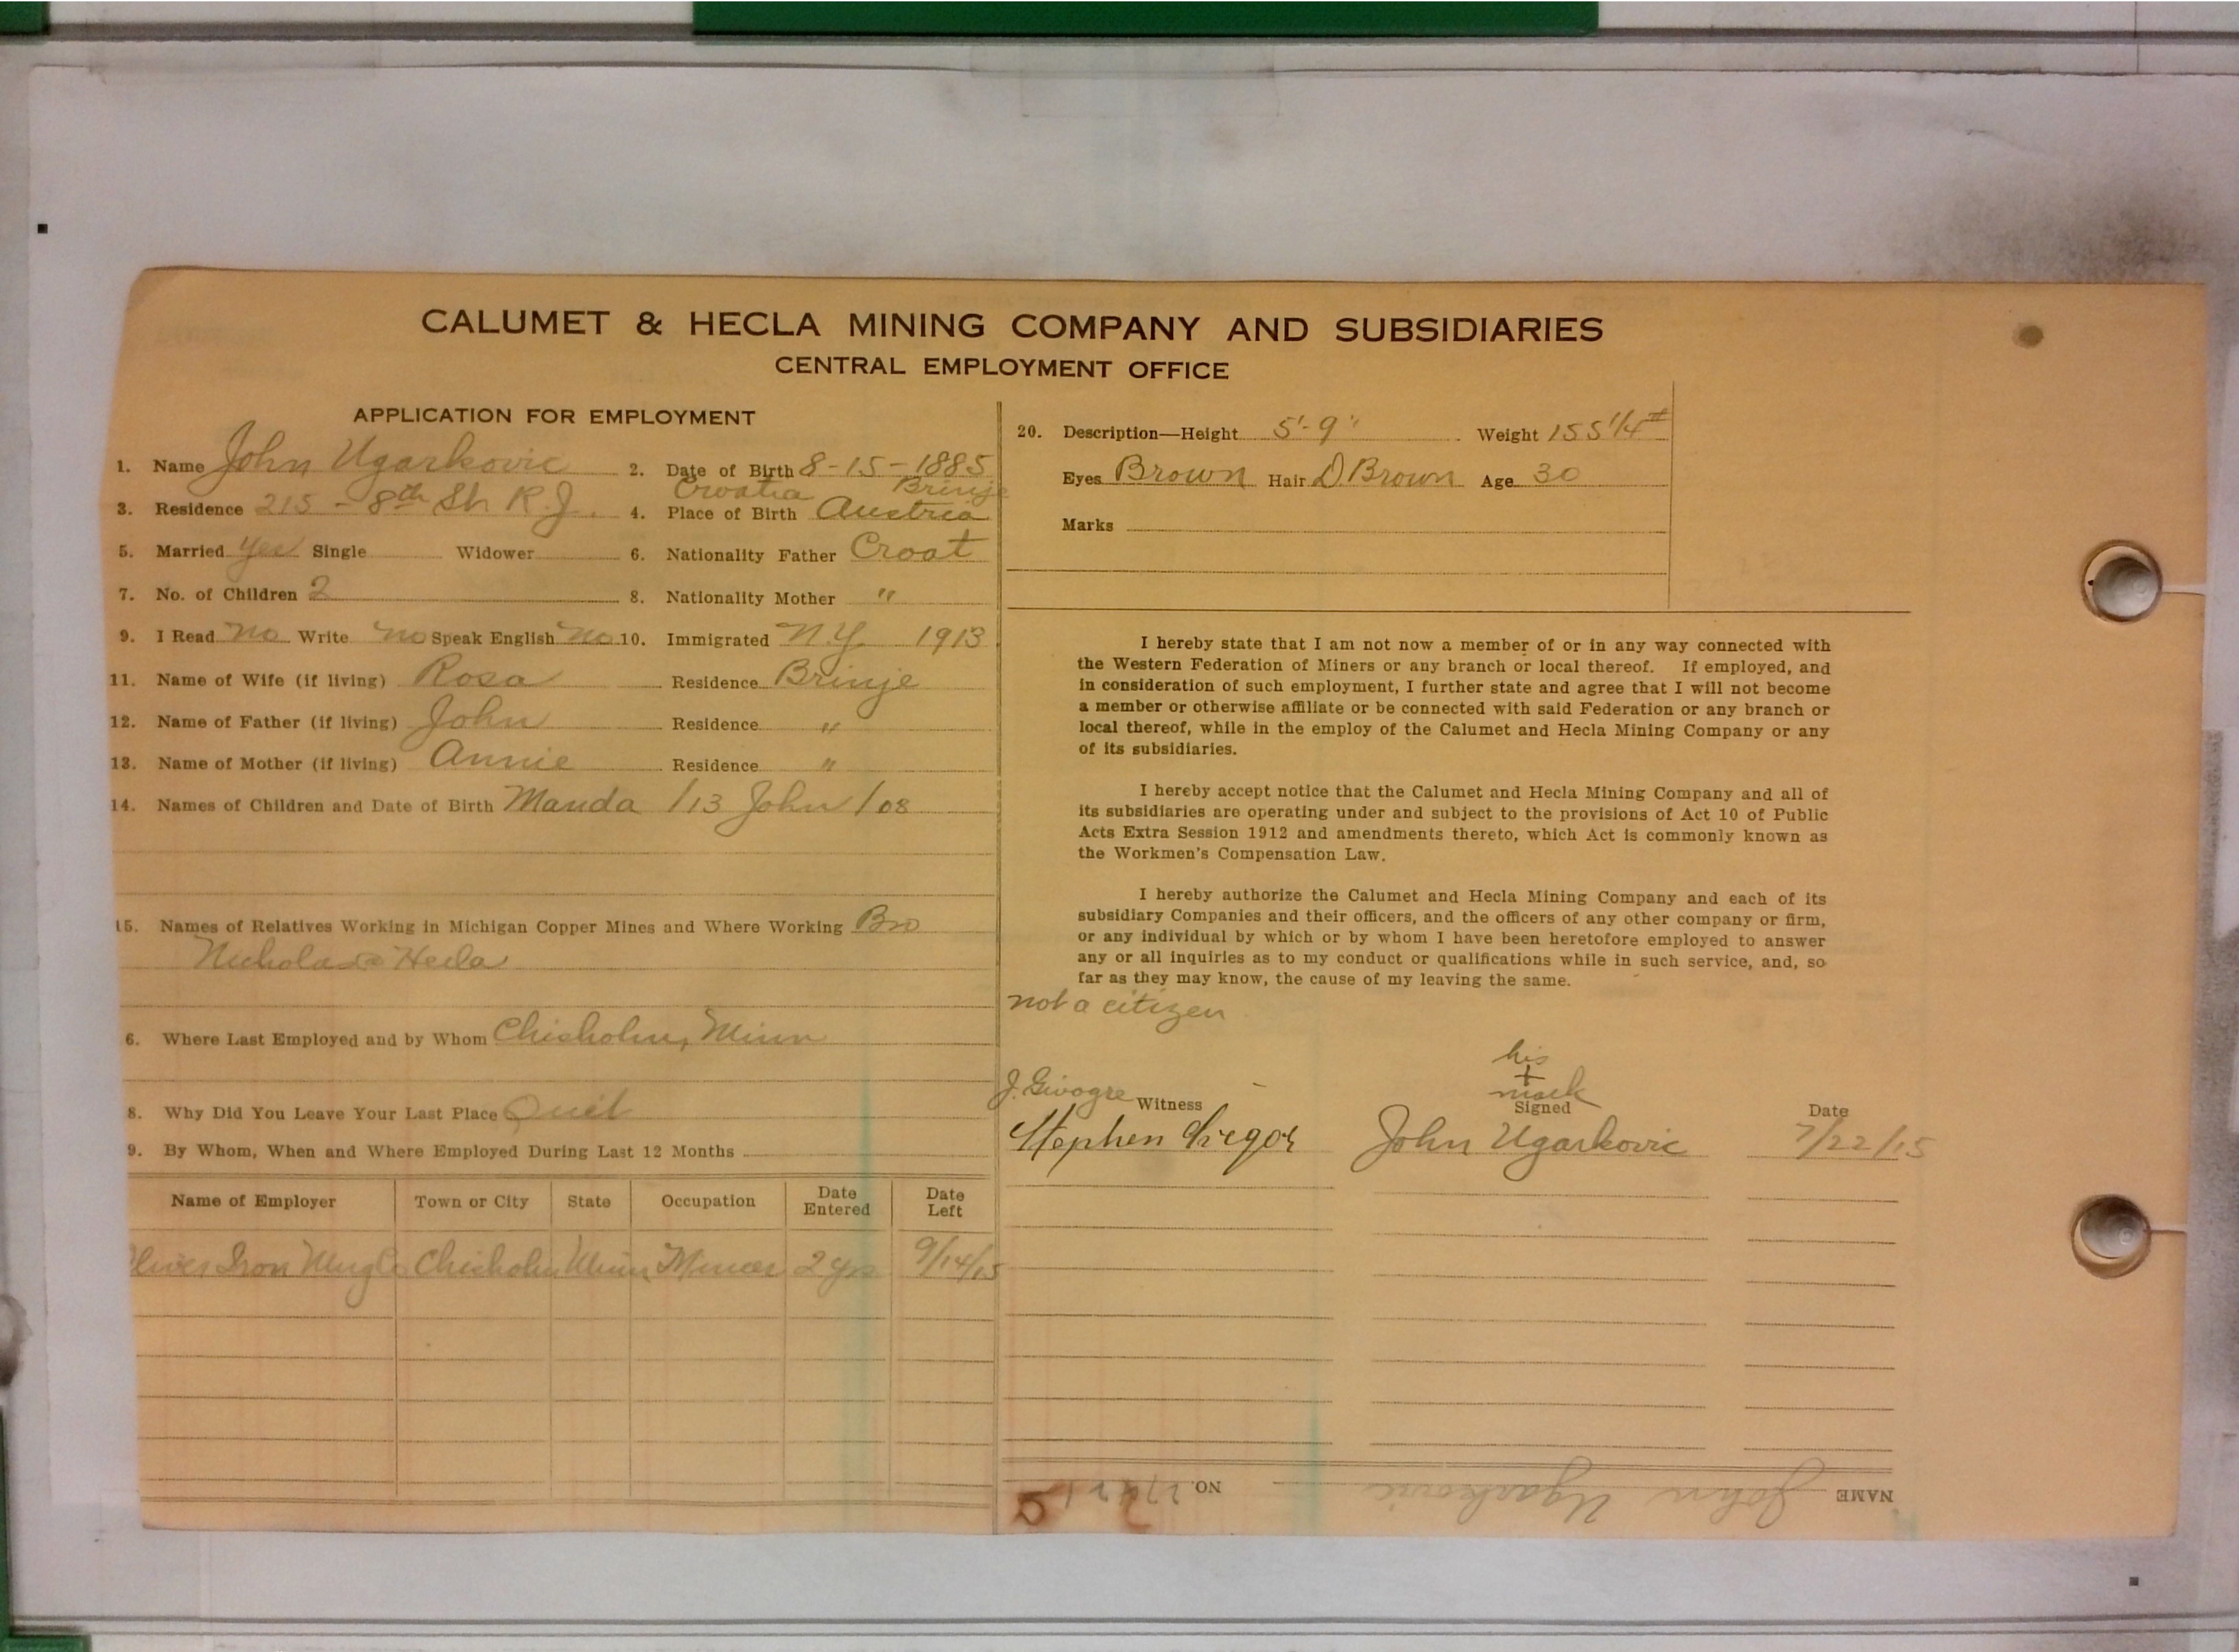 CALUMET & HECLA MINING COMPANY AND SUBSIDIARIES
CENTRAL EMPLOYMENT OFFICE
APPLICATION FOR EMPLOYMENT
1. Name John Ugarkovic 2. Date of Birth 8-15-1885
Croatia Brinje
3. Residence 215 - 8th St R.J. 4. Place of Birth Austria
5. Married Yes Single Widower 6. Nationality Father Croat
7. No. of Children 2 8. Nationality Mother "
9. I Read no Write no Speak English no 10. Immigrated N.Y. 1913
11. Name of Wife (if living) Rosa Residence Brinje
12. Name of Father (if living) John Residence "
13. Name of Mother (if living) Annie Residence "
14. Names of Children and Date of Birth Manda /13 John /08
15. Names of Relatives Working in Michigan Copper Mines and Where Working Bro
Nicholas Hecla
6. Where Last Employed and by Whom Chisholm, Minn
8. Why Did You Leave Your Last Place Quit
9. By Whom, When and Where Employed During Last 12 Months
Name of Employer Town or City State Occupation Date Entered Date Left
Oliver Iron Mng Co Chisholm Minn Miner 2 yrs 9/14/15
20. Description—Height 5'-9" Weight 155 1/4 #
Eyes Brown Hair D.Brown Age 30
Marks
I hereby state that I am not now a member of or in any way connected with
the Western Federation of Miners or any branch or local thereof. If employed, and
in consideration of such employment, I further state and agree that I will not become
a member or otherwise affiliate or be connected with said Federation or any branch or
local thereof, while in the employ of the Calumet and Hecla Mining Company or any
of its subsidiaries.
I hereby accept notice that the Calumet and Hecla Mining Company and all of
its subsidiaries are operating under and subject to the provisions of Act 10 of Public
Acts Extra Session 1912 and amendments thereto, which Act is commonly known as
the Workmen's Compensation Law.
I hereby authorize the Calumet and Hecla Mining Company and each of its
subsidiary Companies and their officers, and the officers of any other company or firm,
or any individual by which or by whom I have been heretofore employed to answer
any or all inquiries as to my conduct or qualifications while in such service, and, so
far as they may know, the cause of my leaving the same.
not a citizen
his
+
mark
J. Witness Signed Date
Stephen Gregor John Ugarkovic 7/22/15
NAME John Ugarkovic NO.